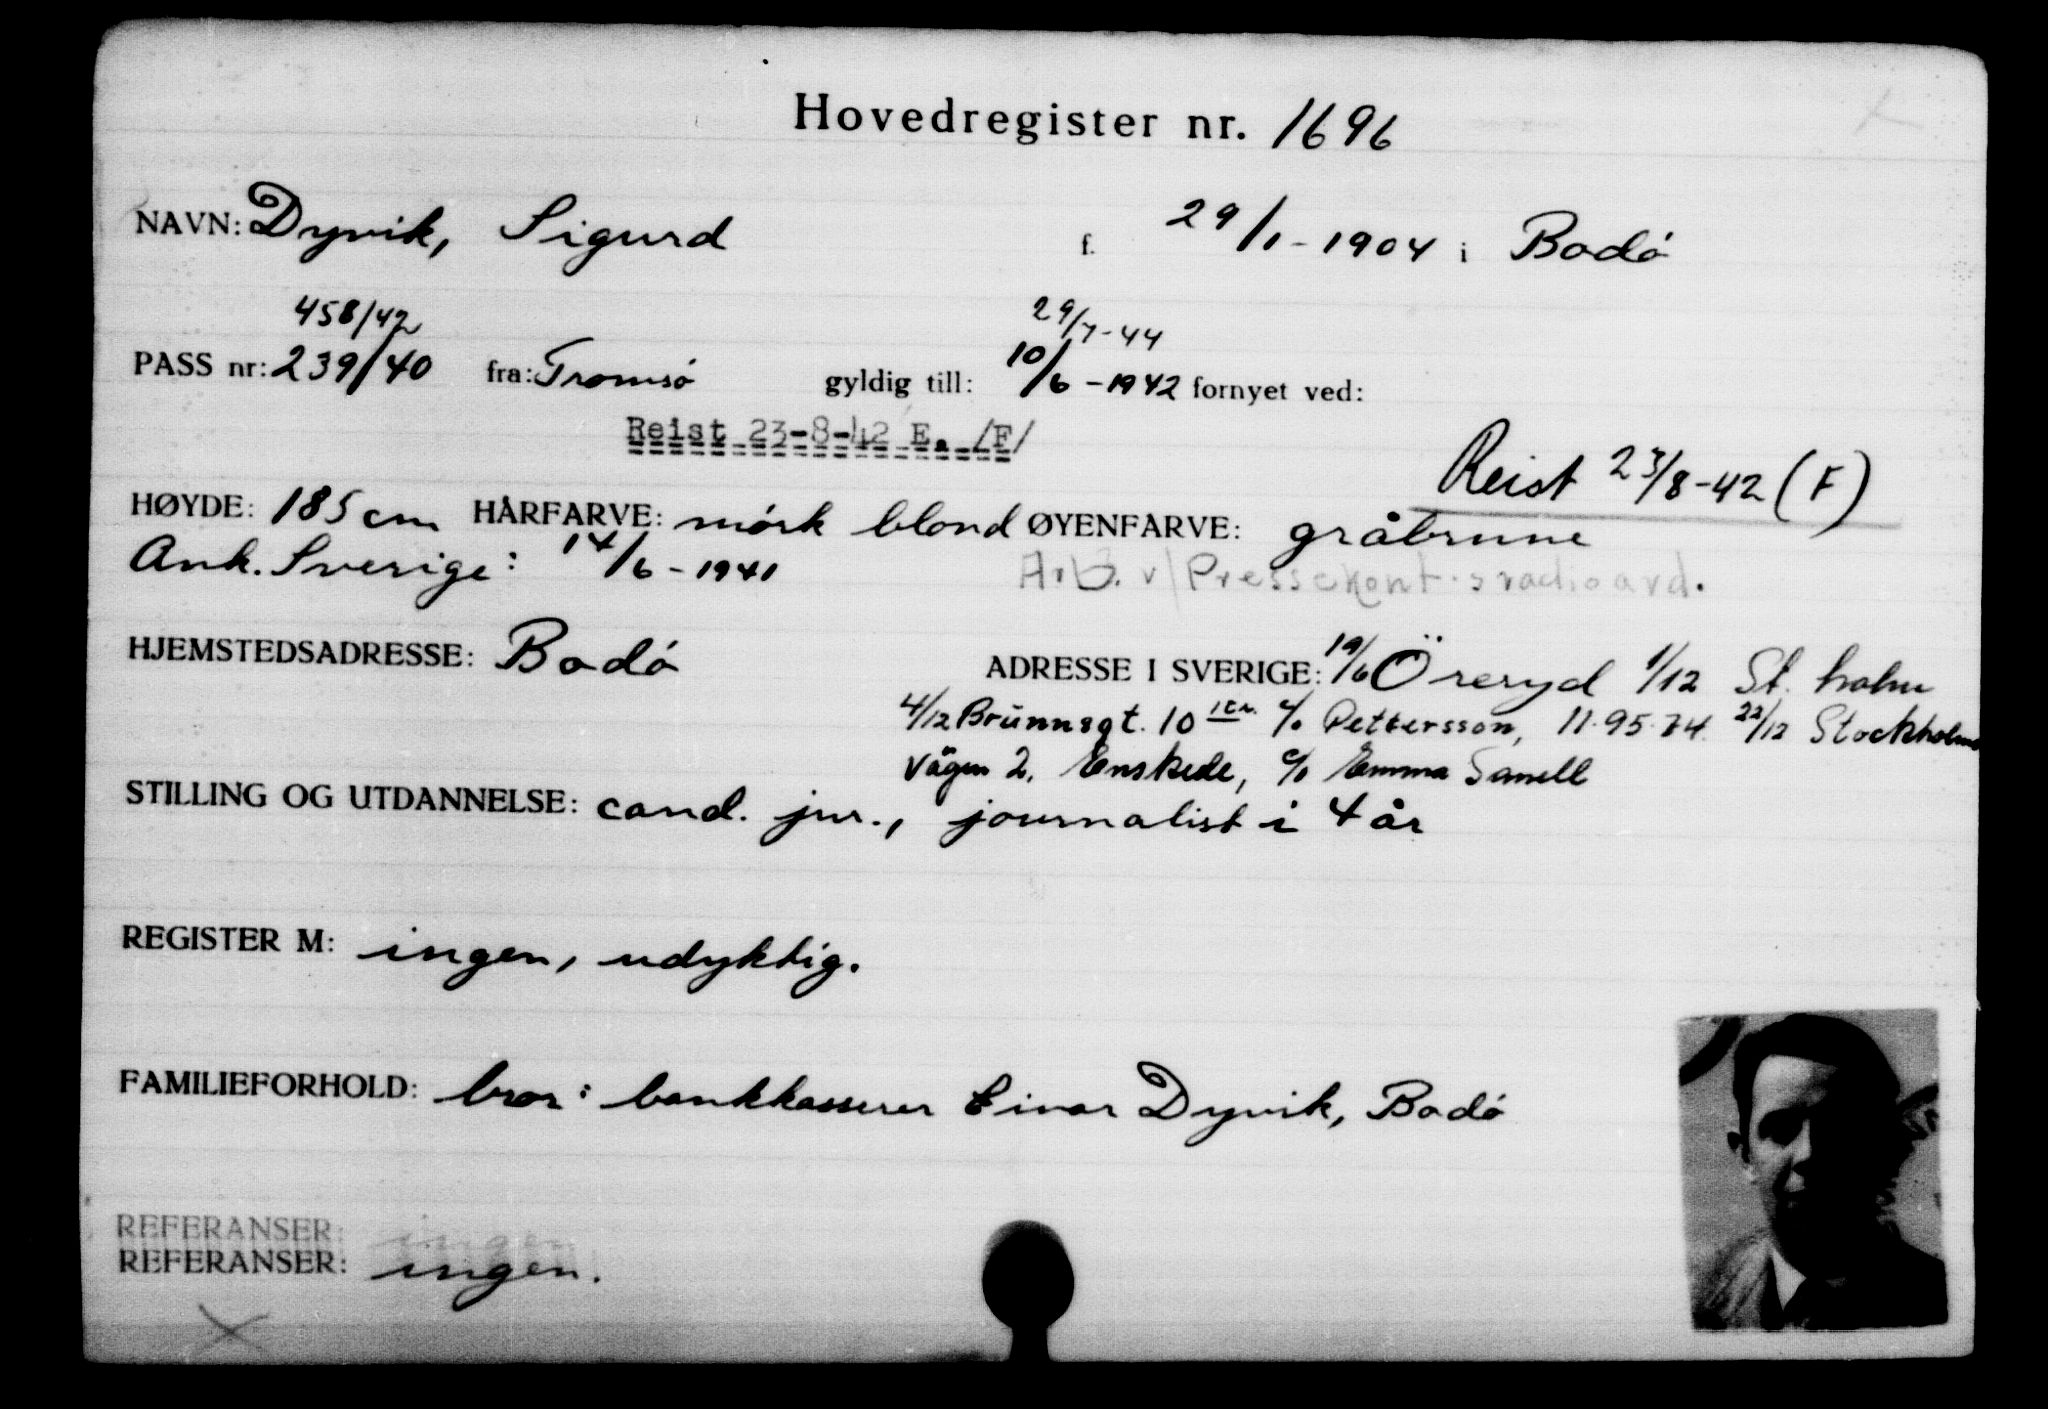 Hovedregister nr. 1696
NAVN: Dyvik, Sigurd f. 29/1-1904 i Bodó
458/42 29/7-44
PASS nr: 239/40 fra: Tromsó gyldig till: 10/6-1942 fornyet ved:
Reist 23-8-42 E. /F/
Reist 23/8-42 (F)
HØYDE: 185 cm HÅRFARVE: mórk blond ØYENFARVE: gråbrune
Ank. Sverige: 14/6-1941 Arb. v/Pressekont.s radioavd.
HJEMSTEDSADRESSE: Bodó ADRESSE I SVERIGE: 19/6 Öreryd 1/12 St. holm
4/12 Brunnsgt. 10 c/o Pettersson, 11.95.74. 22/12 Stockholms
vägen 2, Enskede, c/o Emma Sanell
STILLING OG UTDANNELSE: cand. jur., journalist i 4 år
REGISTER M: ingen, udyktig.
FAMILIEFORHOLD: bror: bankkasserer Einar Dyvik, Bodó
REFERANSER: ingen
REFERANSER: ingen.